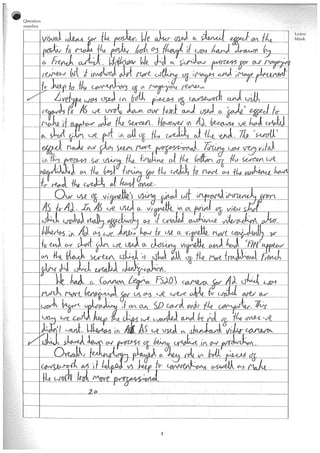 Question
number
Leave
blank
visual ideas for the poster. We also used a stencil effect on the
poster to make the poster look as though it was hand drawn by
a French artist. We did a similar process for our magazine
review but it involved more cutting of images and image placement
to keep to the conventions of a magazine review.
Livetype was used in both pieces of coursework and with
regards to AS we wrote down our text and used a 'fade' effect to
make it appear onto the screen. However in A2 because we had created
a short film we put in all of the credits at the end. The 'scroll'
effect made our film seem more professional. Timing was very vital
in this process so using the timeline at the bottom of the screen we
negotiated on the best timing for the credits to move so the audience have
to read the credits at least once.
Our use of vignette's using final cut improved immensely from
AS to A2. In AS we used a vignette in a point of view shot
which worked really effectively as it created audience interaction also.
Whereas in A2 as we knew how to use a vignette more confidently so
to end our short film we used a closing vignette and had 'FIN' appear
on the black screen which is what all of the more traditional French
films did which created identification.
We had a Cannon Legria FS203 camera for A2 which was
much more beneficial for us as we were able to watch over our
work before uploading it on an SD card onto the computer. This
way we could keep the clips we wanted and be rid of the ones we
didn't want. Whereas in AS we used a standard video camera
which slowed down our process of being creative in our production.
Overall, technology played a key role in both pieces of
coursework as it helped us keep to conventions aswell as make
the work look more professional.
20